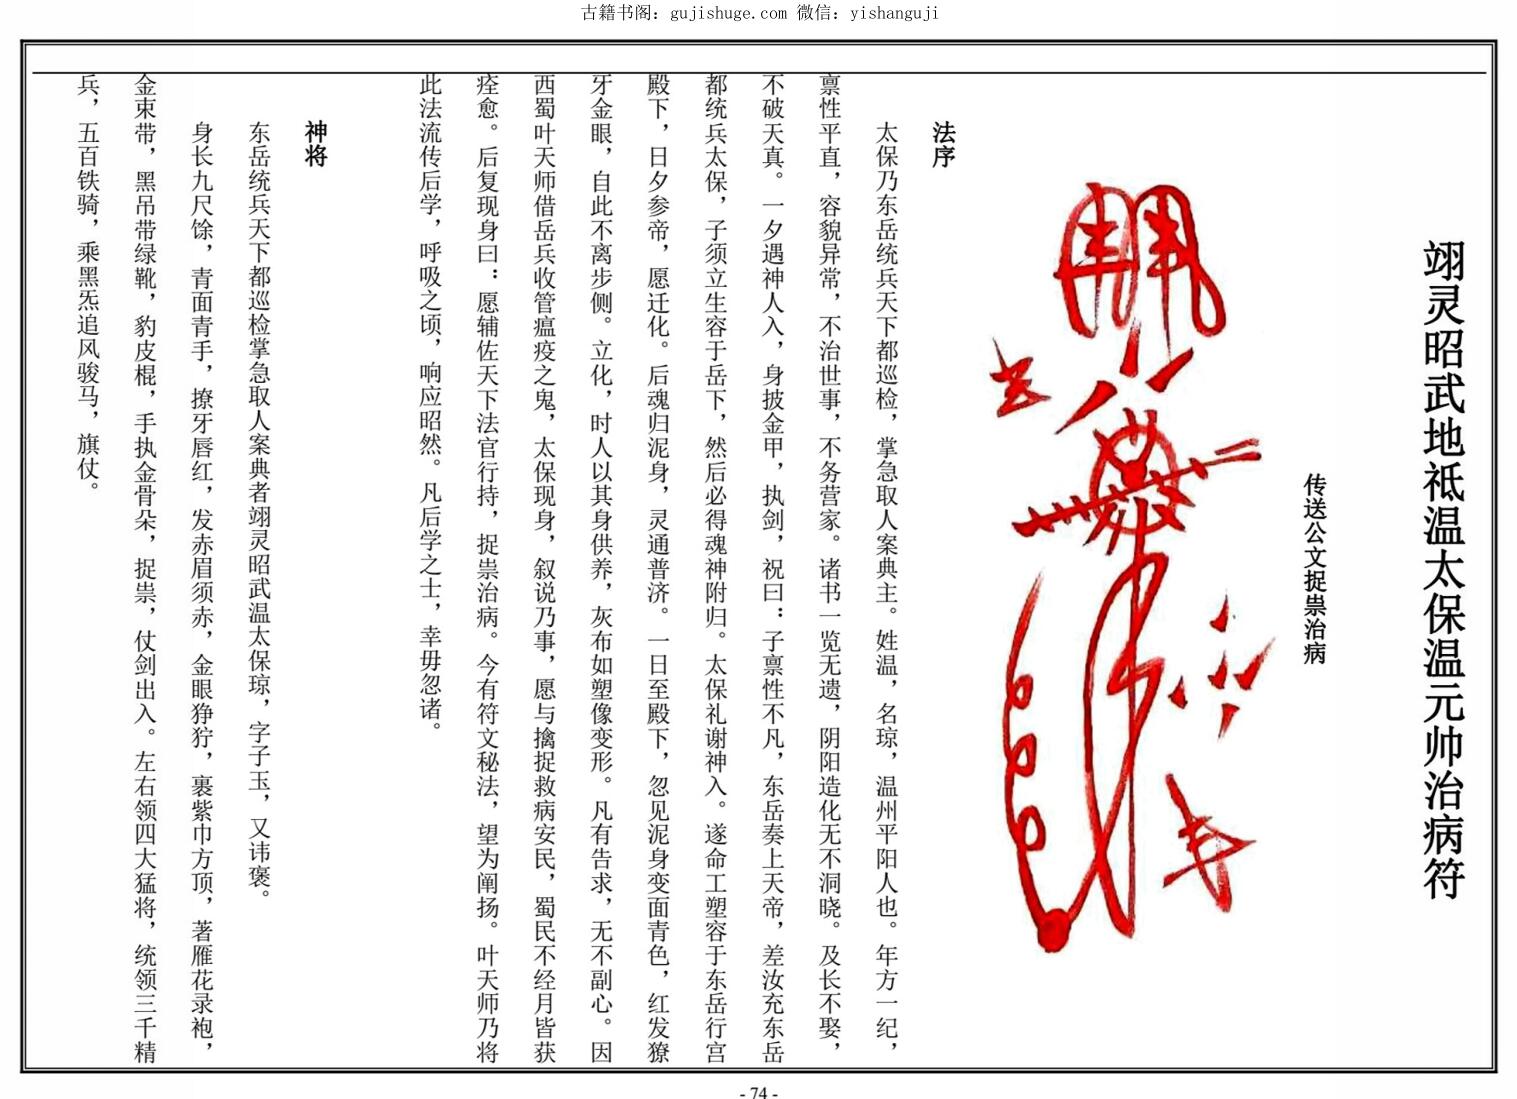 古籍书阁：gujishuge.com 微信：yishanguji
翊灵昭武地祇温太保温元帅治病符
传送公文捉祟治病
法序
太保乃东岳统兵天下都巡检，掌急取人案典主。姓温，名琼，温州平阳人也。年方一纪，
禀性平直，容貌异常，不治世事，不务营家。诸书一览无遗，阴阳造化无不洞晓。及长不娶，
不破天真。一夕遇神人入，身披金甲，执剑，祝曰：子禀性不凡，东岳奏上天帝，差汝充东岳
都统兵太保，子须立生容于岳下，然后必得魂神附归。太保礼谢神入。遂命工塑容于东岳行宫
殿下，日夕参帝，愿迁化。后魂归泥身，灵通普济。一日至殿下，忽见泥身变面青色，红发獠
牙金眼，自此不离步侧。立化，时人以其身供养，灰布如塑像变形。凡有告求，无不副心。因
西蜀叶天师借岳兵收管瘟疫之鬼，太保现身，叙说乃事，愿与擒捉救病安民，蜀民不经月皆获
痊愈。后复现身曰：愿辅佐天下法官行持，捉祟治病。今有符文秘法，望为阐扬。叶天师乃将
此法流传后学，呼吸之顷，响应昭然。凡后学之士，幸毋忽诸。
神将
东岳统兵天下都巡检掌急取人案典者翊灵昭武温太保琼，字子玉，又讳褒。
身长九尺馀，青面青手，撩牙唇红，发赤眉须赤，金眼狰狞，裹紫巾方顶，著雁花录袍，
金束带，黑吊带绿靴，豹皮棍，手执金骨朵，捉祟，仗剑出入。左右领四大猛将，统领三千精
兵，五百铁骑，乘黑炁追风骏马，旗仗。
- 74 -